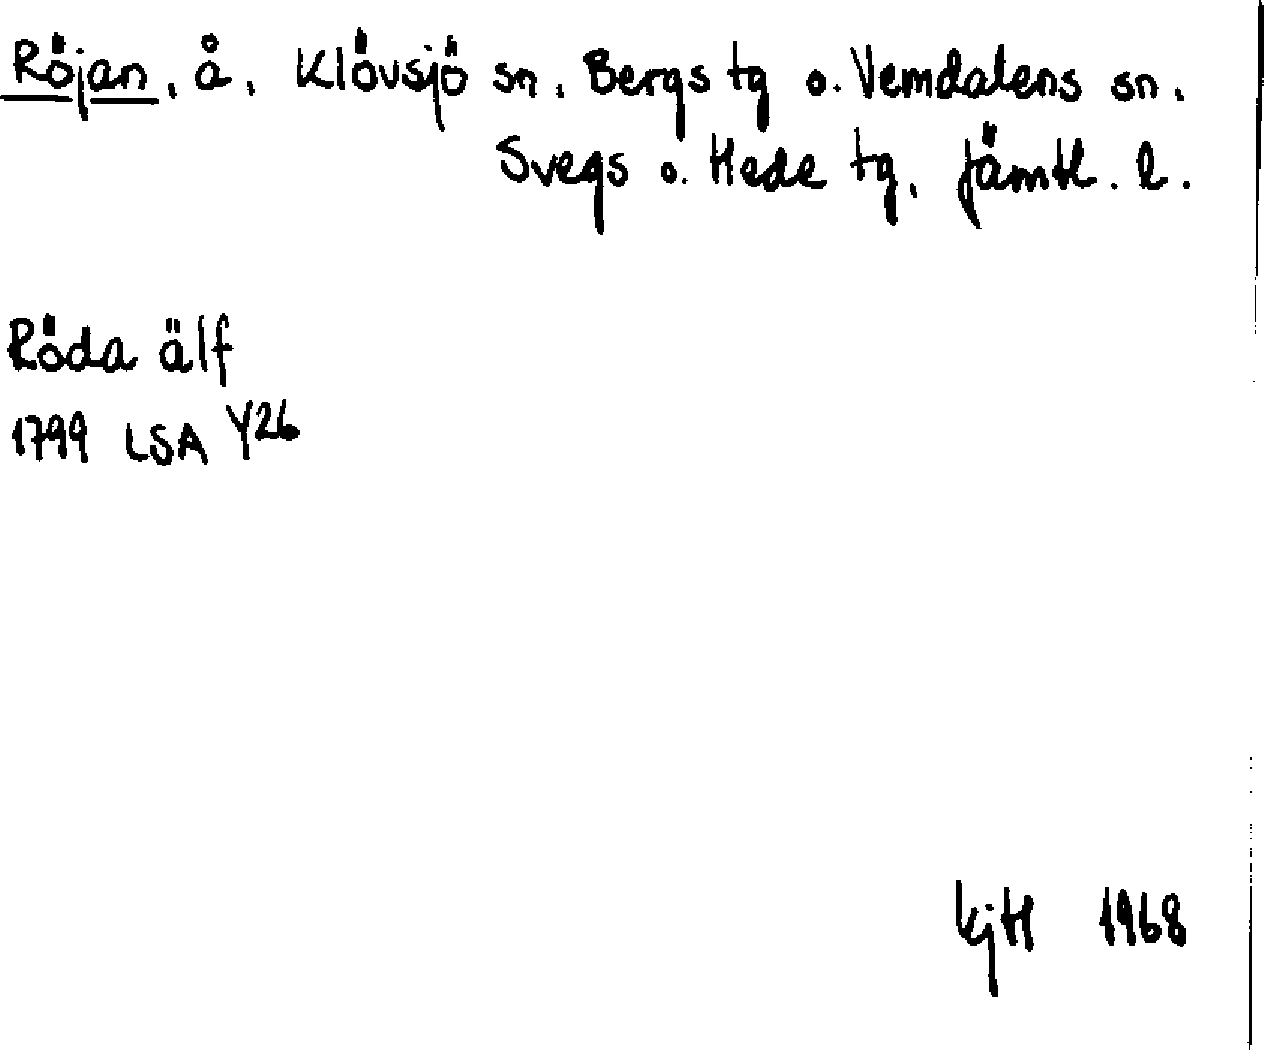 Röjan, å, Klövsjö sn, Bergs tg o. Vemdalens sn,
Svegs o. Hede tg, Jämtl. l.
Röda älf
1799 LSA Y26
KjH 1968